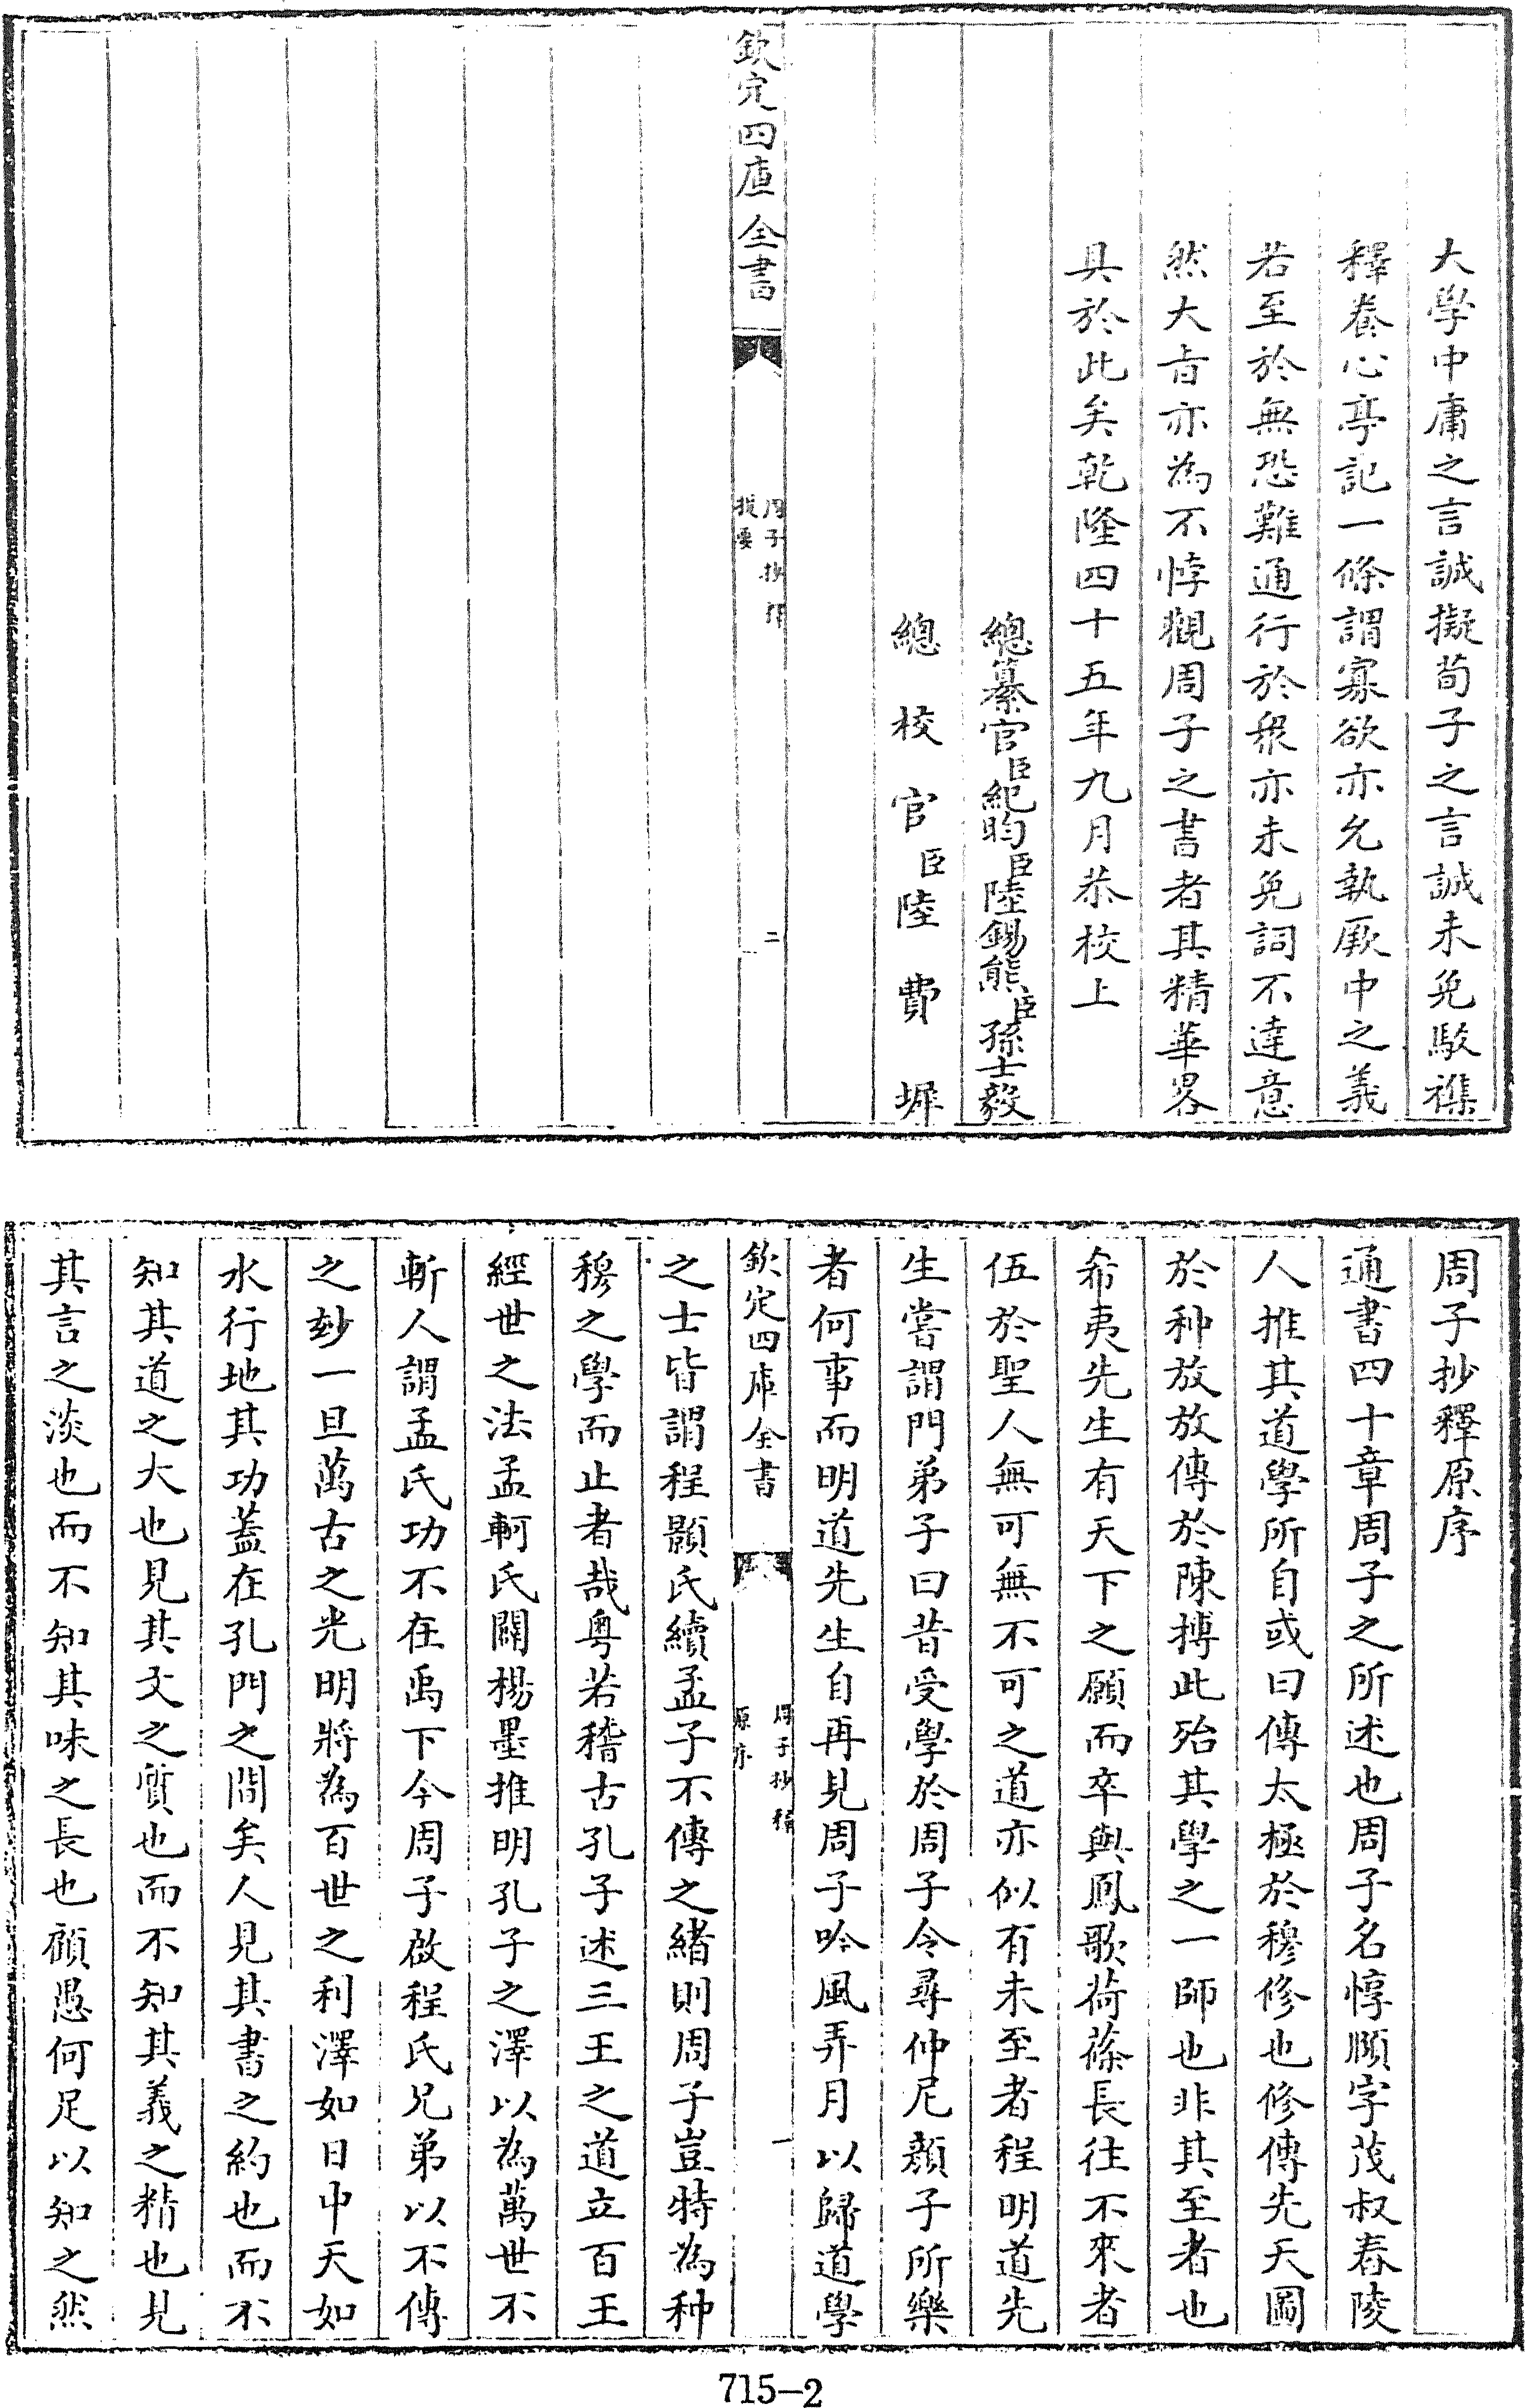 大學中庸之言誠擬荀子之言誠未免駁襍
釋養心亭記一條謂寡欲亦允執厥中之義
若至於無恐難通行於衆亦未免詞不達意
然大㫖亦為不悖觀周子之書者其精華畧
具於此矣乾隆四十五年九月恭校上
總纂官臣紀昀臣陸錫熊臣孫士毅
總校官臣陸費墀
欽定四庫全書
周子抄釋
提要
二
周子抄釋原序
通書四十章周子之所述也周子名惇頤字茂叔舂陵
人推其道學所自或曰傳太極於穆修也修傳先天圖
於种放放傳於陳摶此殆其學之一師也非其至者也
希夷先生有天下之願而卒與鳳歌荷蓧長往不來者
伍於聖人無可無不可之道亦似有未至者程明道先
生嘗謂門弟子曰昔受學於周子令尋仲尼顏子所樂
者何事而明道先生自再見周子吟風弄月以歸道學
欽定四庫全書
周子抄釋
原序
一
之士皆謂程顥氏續孟子不傳之緒則周子豈特為种
穆之學而止者哉粵若稽古孔子述三王之道立百王
經世之法孟軻氏闢楊墨推明孔子之澤以為萬世不
斬人謂孟氏功不在禹下今周子啟程氏兄弟以不傳
之玅一旦萬古之光明將為百世之利澤如日中天如
水行地其功蓋在孔門之間矣人見其書之約也而不
知其道之大也見其文之質也而不知其義之精也見
其言之淡也而不知其味之長也顧愚何足以知之然
715-2